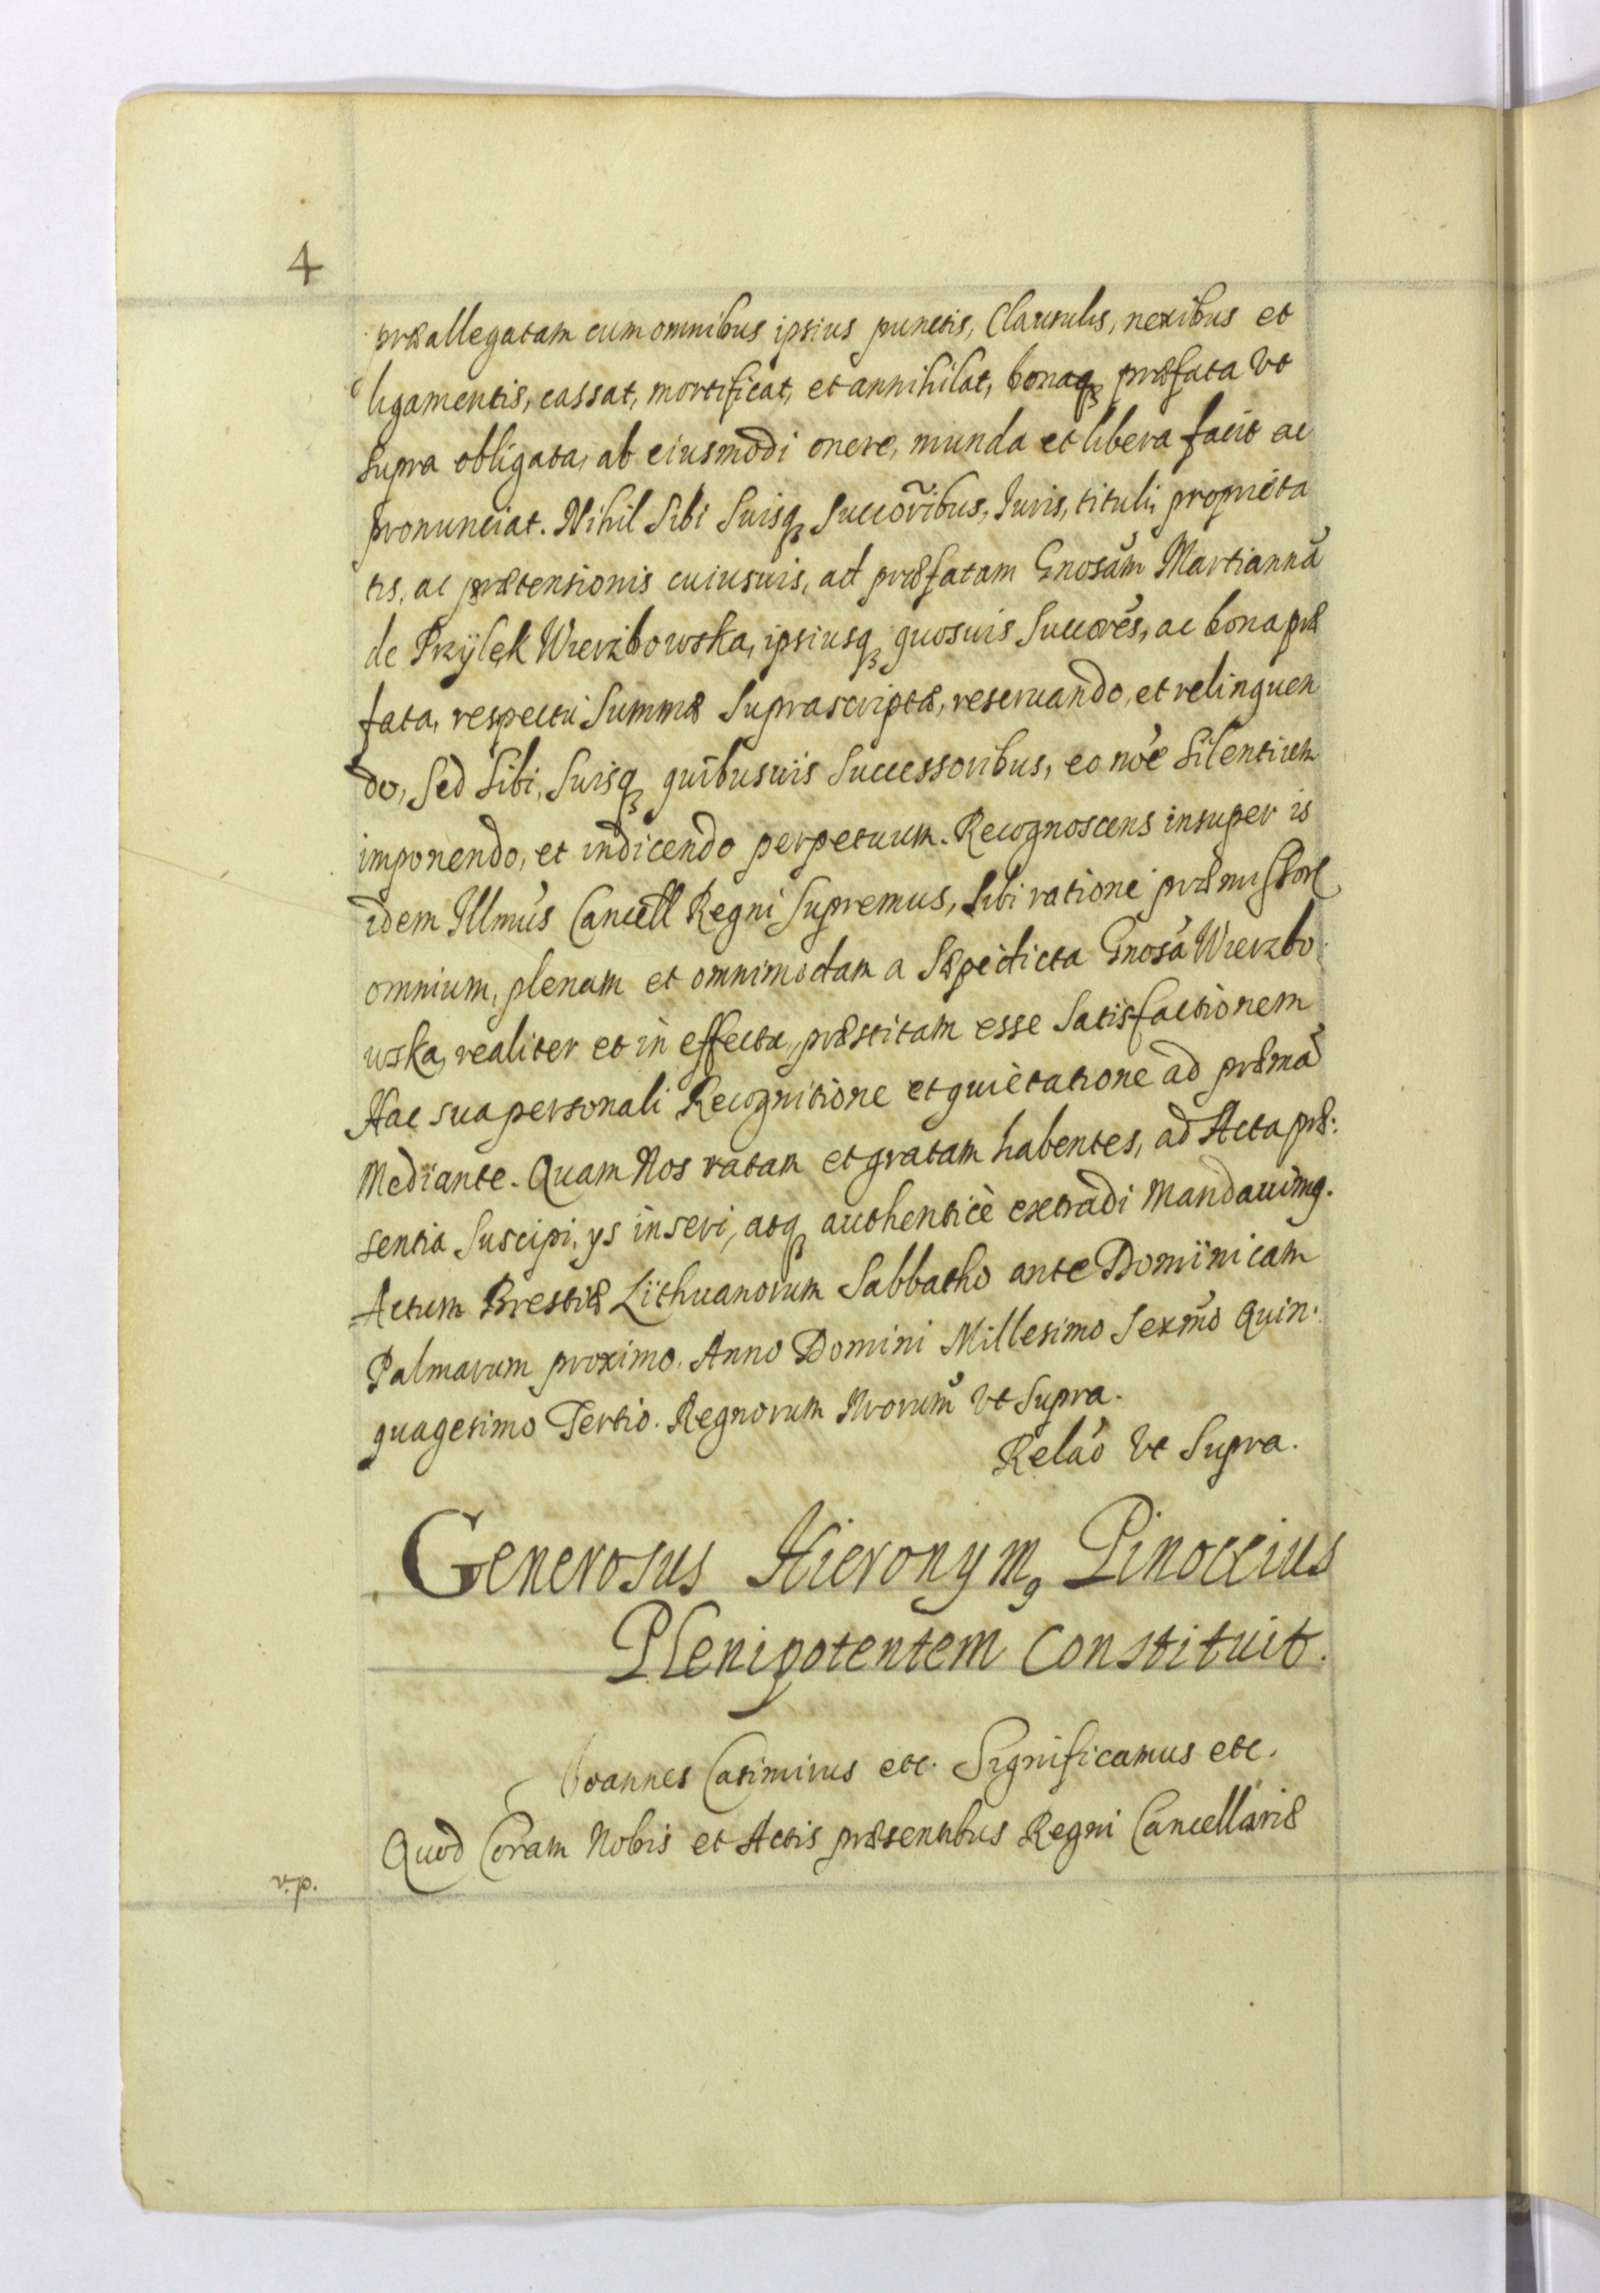 4
præallegatam cum omnibus ipsius punctis, Clausulis, nexibus et
ligamentis, cassat, mortificat, et annihilat, bonaqꝫ præfata Vt
supra obligata, ab eiusmodi onere, munda et libera facit ac
pronunciat. Nihil Sibi Suisqꝫ Succõribus, Iuris, tituli, proprieta
tis, ac prætensionis cuiusuis, ad præfatam Gnosam̃ Martiannã
de Przÿlęk Wierzbowska, ipsiusqꝫ quosuis Succorẽs, ac bona præ
fata, respectu Summæ Suprascriptæ, reseruando, et relinquen
do, Sed Sibi, Suisqꝫ quibusuis Successoribus, eo noẽ Silentium
imponendo, et indicendo perpetuum. Recognoscens insuper is
idem Illmũs Cancell Regni Supremus, Sibi ratione præmissorꝝ
omnium, plenam et omnimodam a Sæpedicta Gnosã Wierzbo
wska, realiter et in effectu, præstitam esse Satisfactionem
Hac sua personali Recognitione et quietatione ad præmã
Mediante. Quam Nos ratam et gratam habentes, ad Acta præ:
sentia Suscipi, ys inseri, atqꝫ authenticè extradi Mandauimꝰ.
Actum Brestiæ Lithuanorum Sabbatho ante Dominicam
Palmarum proximo. Anno Domini Millesimo Sexmõ Quin:
quagesimo Tertio. Regnorum Nrorum̃ Vt Supra.
Relaõ Vt Supra.
Generosus Hieronymꝰ Pinoccius
Plenipotentem Constituit.
Ioannes Casimirus etc. Significamus etc.
Quod Coram Nobis et Actis præsentibus Regni Cancellariæ
v.p.